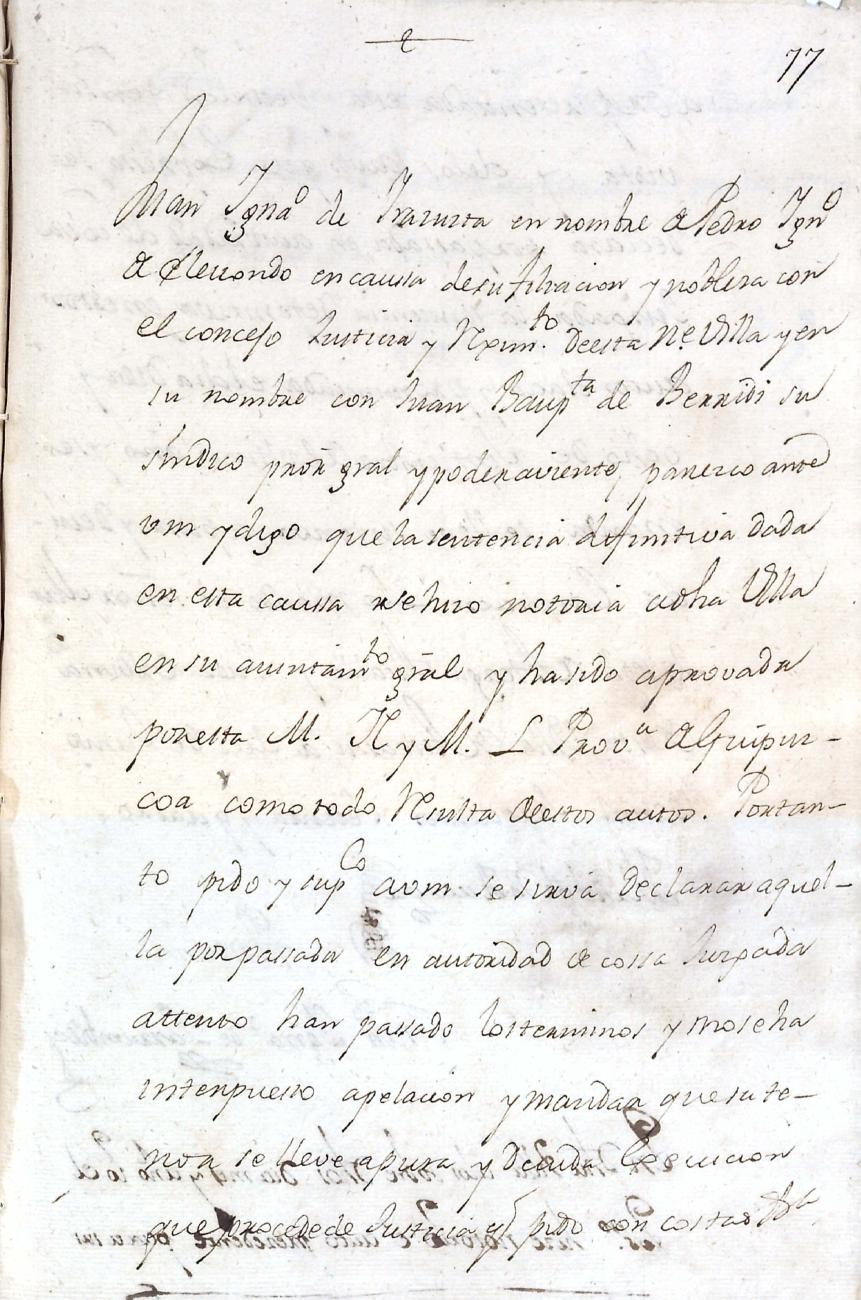 77
Juan Ygnaº de Yrazusta en nombre de Pedro Ygnº
de Eleuondo en caussa de su filiacion y nobleza con
el concejo Justicia y Reximto de esta Ne Villa y en
su nombre con Juan Bauptta de Berridi su
síndico prōr gral y poderaviente, parezco ante
vm y digo que la sentencia difinitiva dada
en esta caussa se hizo notoria a dha Villa
en su auintamto gral y ha sido aprovada
por esta M. N y M. L Prova de Guipuz-
coa como todo Resulta de estos autos. Portan-
to pido y supco a vm se sirva declarar aquel-
la por passada en autoridad de cossa Juzgada
attento han passado los terminos y no se ha
interpuesto apelacion y mandar que su te-
nor se lleve a pura y devida execucion
que procede de Justicia y pido con costas &a